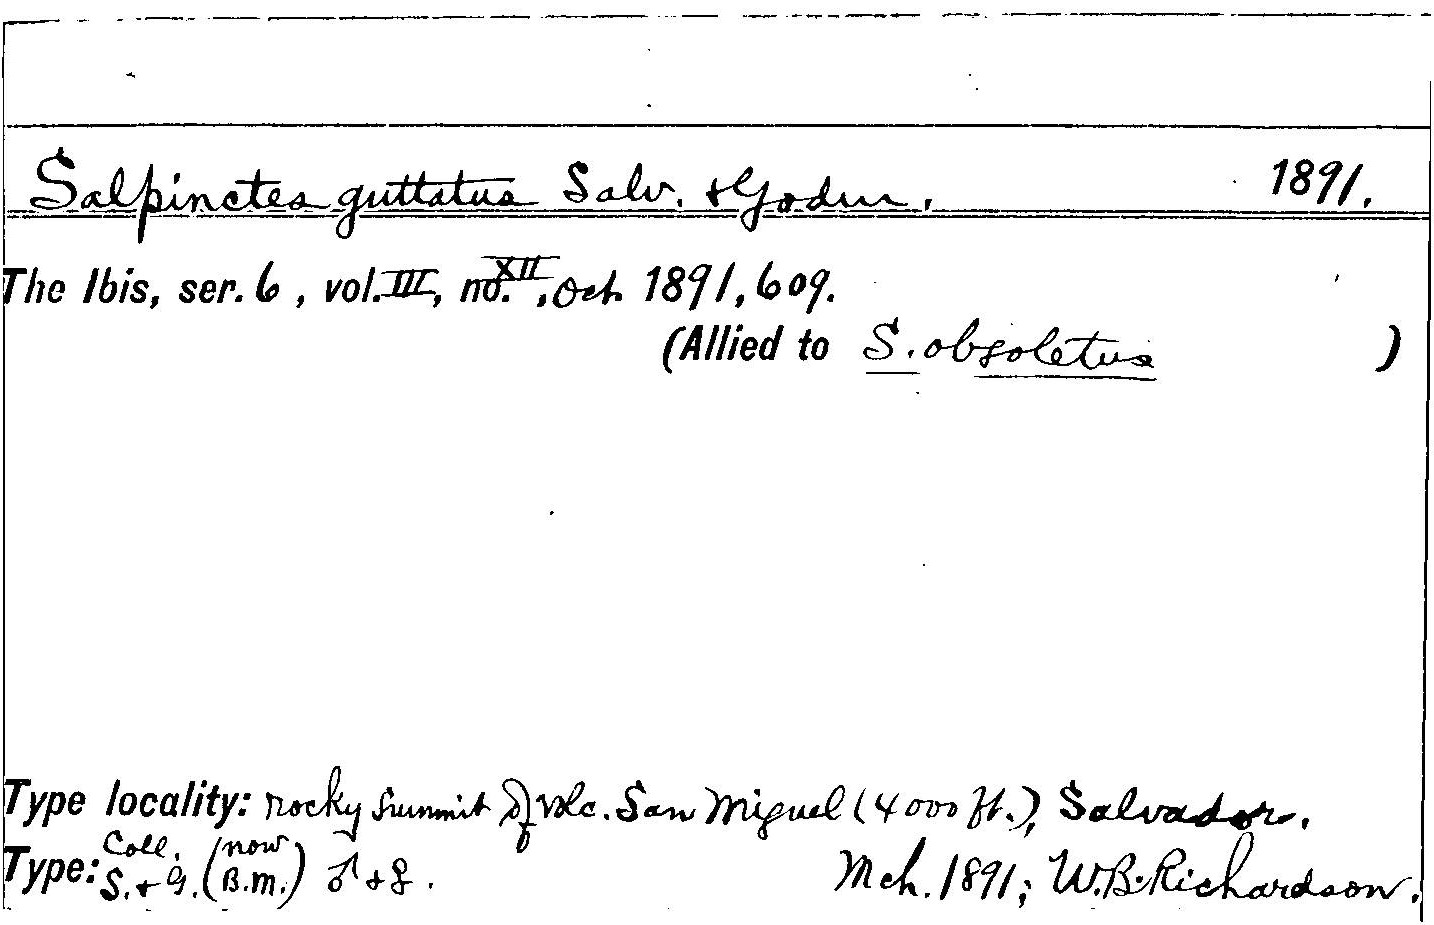 Salpinctes guttatus Salv. & Godm. 1891.
The Ibis, ser. 6, vol. III, no. XII, Oct. 1891, 609.
(Allied to S. obsoletus )
Type locality: rocky summit of Volc. San Miguel (4000 ft.), Salvador.
Type: Coll. S. & G. (now B.M.) ♂ & ♀. Mch. 1891; W.B. Richardson.